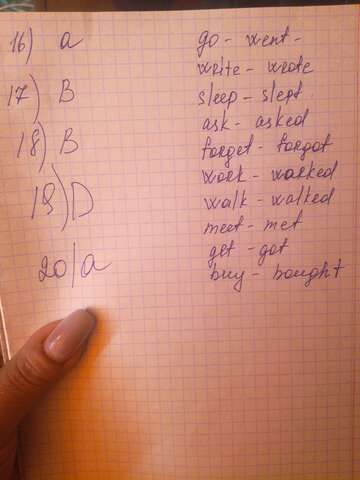 16) a
17) B
18) B
19) D
20) a
go - went -
write - wrote
sleep - slept
ask - asked
forget - forgot
work - worked
walk - walked
meet - met
get - got
buy - bought